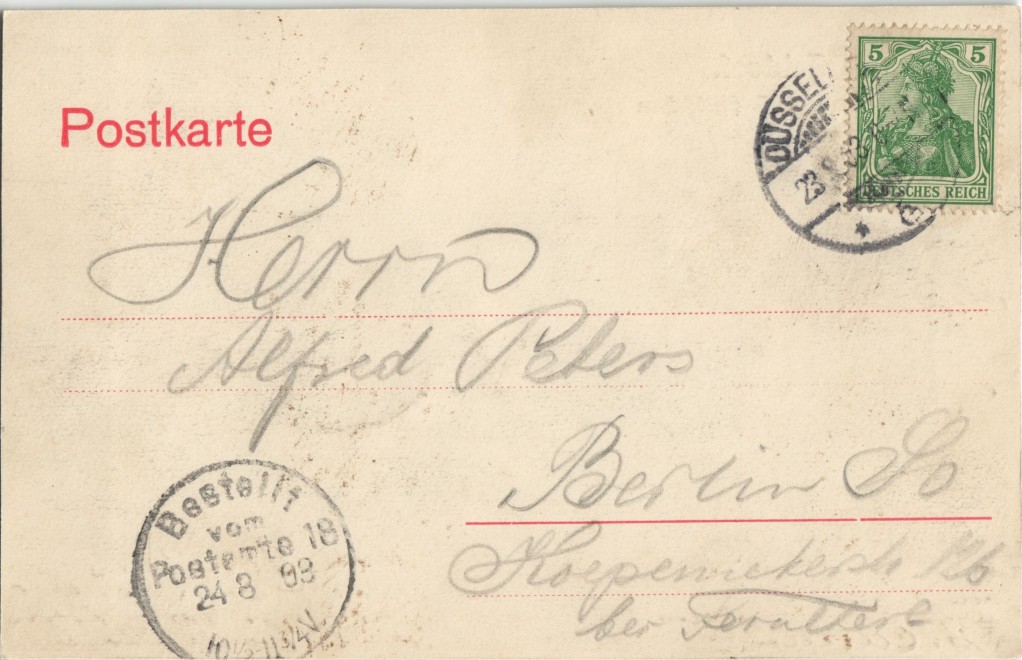 Postkarte
5 5
DEUTSCHES REICH
DÜSSEL
23 8 03
Herrn
Alfred Peters
Berlin So
Koepenickerstr
bei
Bestellt
vom
Postamte 18
24 8 03
10½-11¾V.